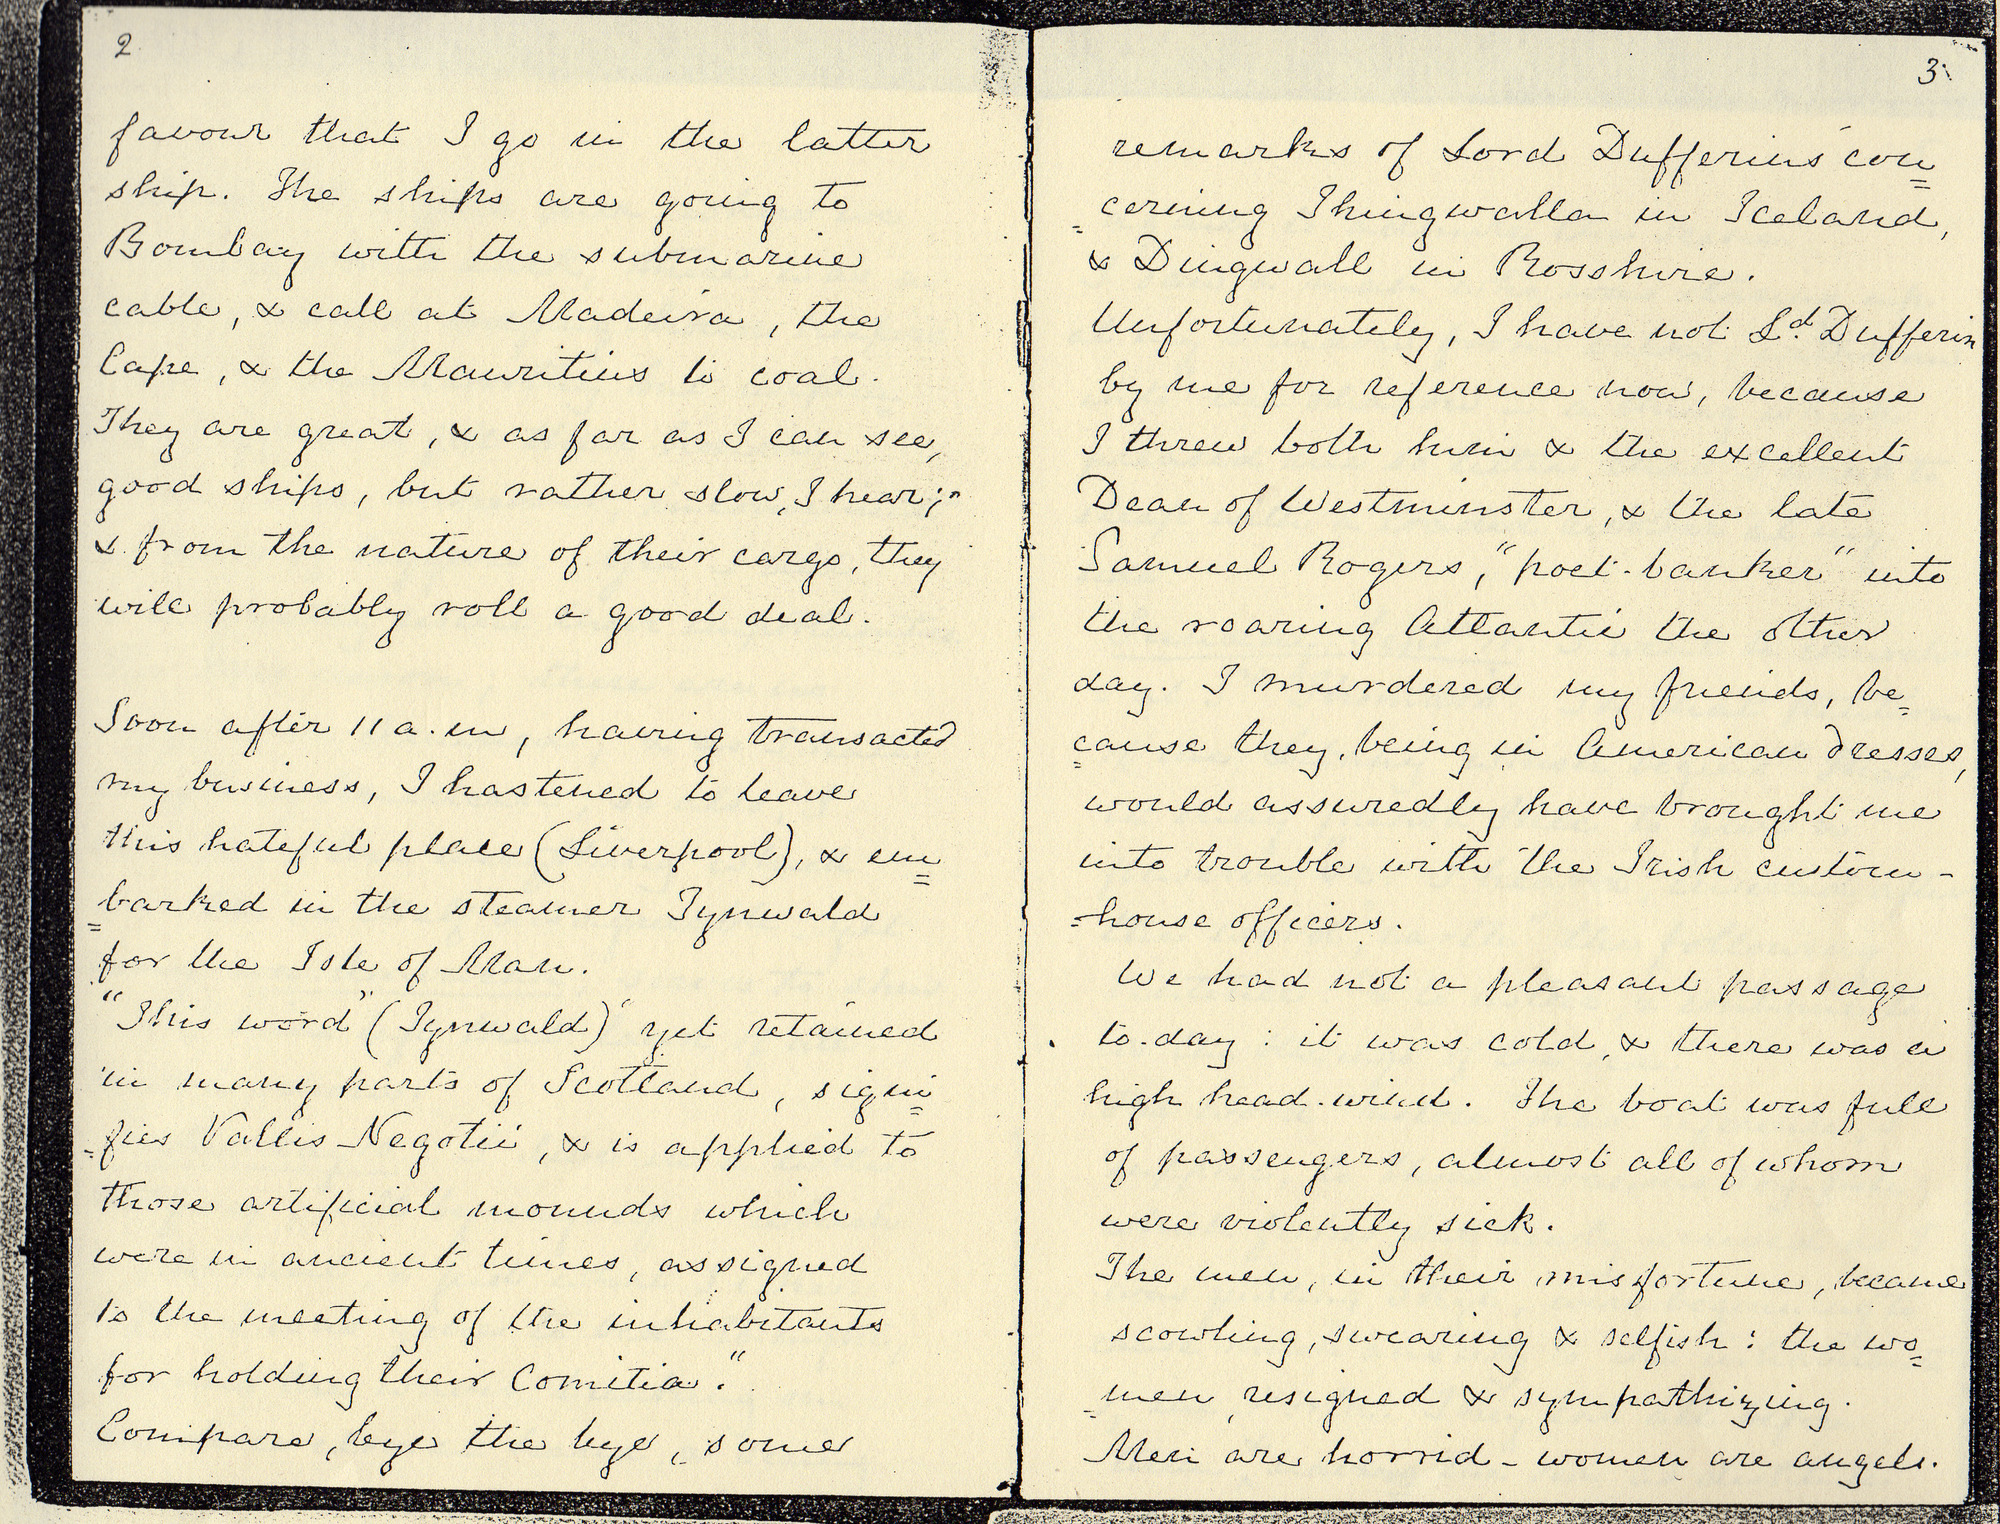 2
favour that I go in the latter
ship. The ships are going to
Bombay with the submarine
cable, & call at Madeira, the
Cape, & the Mauritius to coal.
They are great, & as far as I can see,
good ships, but rather slow, I hear;
& from the nature of their cargo, they
will probably roll a good deal.
Soon after 11 a.m, having transacted
my business, I hastened to leave
this hateful place (Liverpool), & em=
=barked in the steamer Tynwald
for the Isle of Man.
"This word" (Tynwald) "yet retained
in many parts of Scotland, signi=
=fies Vallis Negotii, & is applied to
those artificial mounds which
were in ancient times, assigned
to the meeting of the inhabitants
for holding their Comitia."
Compare, bye the bye, some
3
remarks of Lord Dufferin's con=
=cerning Thingwalla in Iceland,
& Dingwall in Rosshire.
Unfortunately, I have not Ld. Dufferin
by me for reference now, because
I threw both him & the excellent
Dean of Westminster, & the late
Samuel Rogers, "poet-banker" into
the roaring Atlantic the other
day. I murdered my friends, be=
=cause they, being in American dresses,
would assuredly have brought me
into trouble with the Irish custom-
=house officers.
We had not a pleasant passage
to-day: it was cold, & there was a
high head-wind. The boat was full
of passengers, almost all of whom
were violently sick.
The men, in their misfortune, became
scowling, swearing & selfish: the wo=
=men, resigned & sympathizing.
Men are horrid - women are angels.